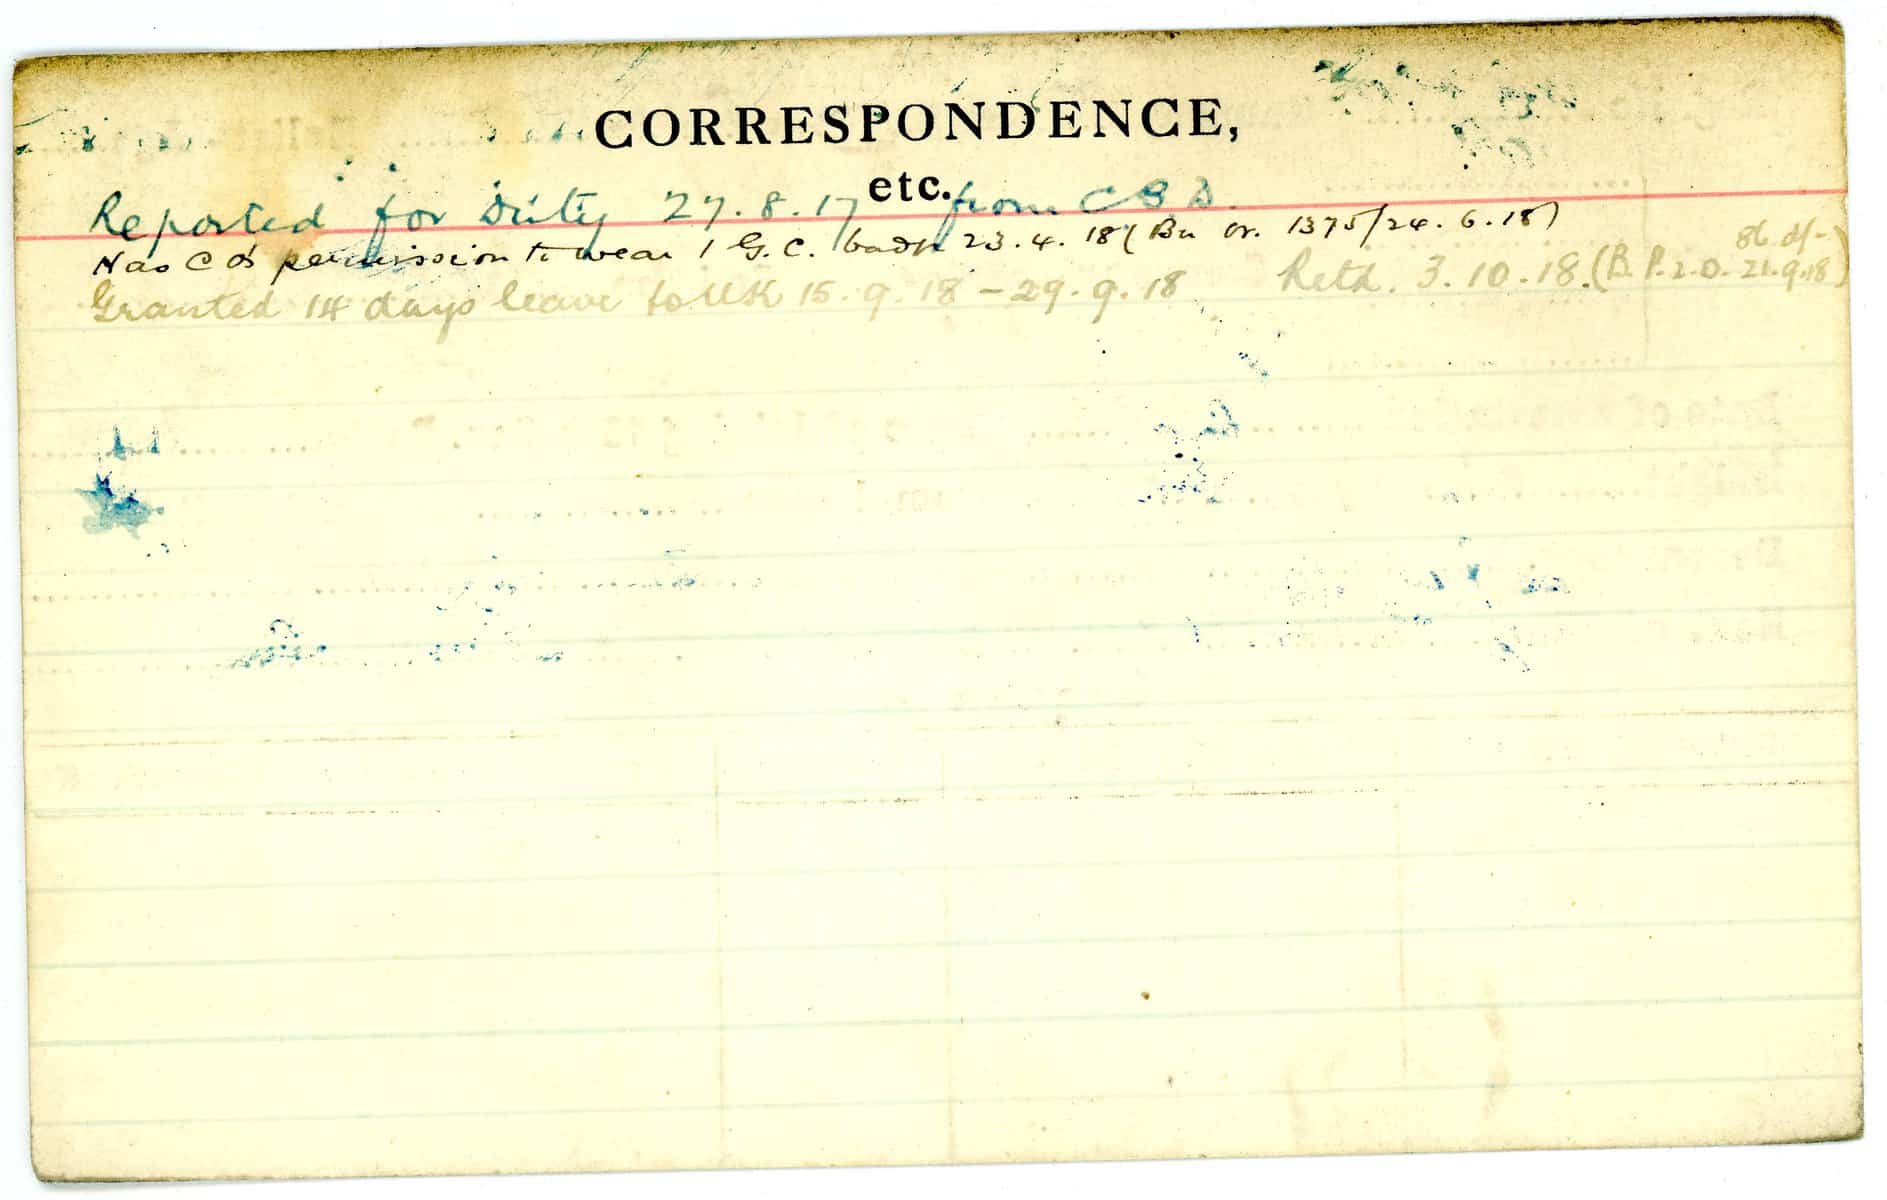 CORRESPONDENCE,
etc.
Reported for Duty 27.8.17 from C B D.
Has C O's permission to wear 1 G.C. badge 23.4.18 (Bn Or. 1375/24.6.18)
Granted 14 days leave to UK 15.9.18 - 29.9.18 Retd. 3.10.18. (B. P.2.O. 86 d/- 21.9.18)